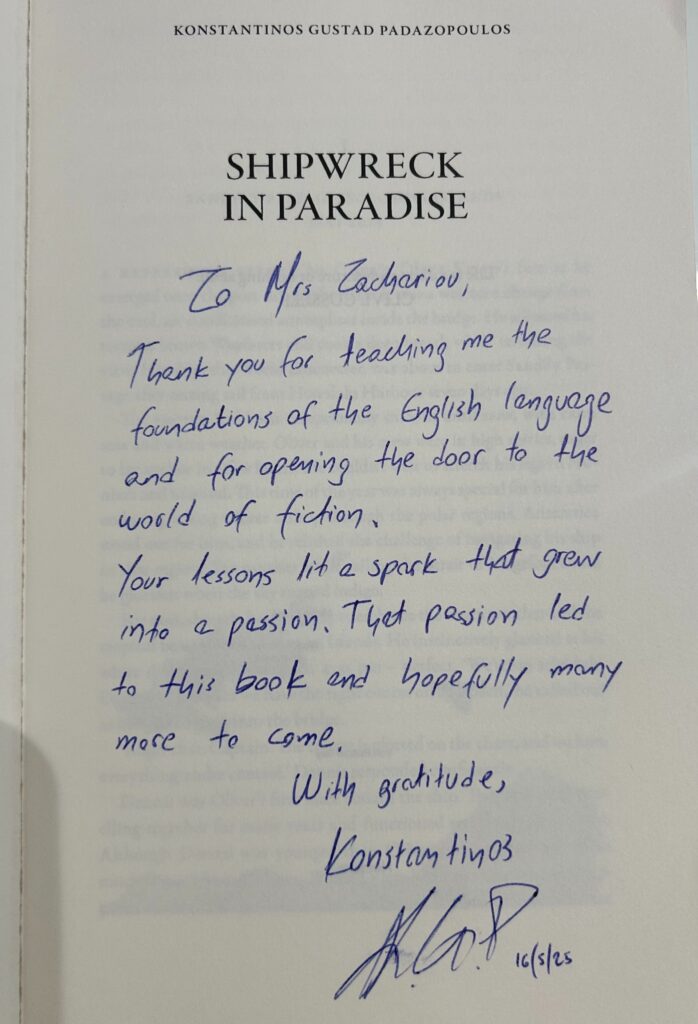 KONSTANTINOS GUSTAD PADAZOPOULOS
SHIPWRECK
IN PARADISE
To Mrs Zachariou,
Thank you for teaching me the
foundations of the English language
and for opening the door to the
world of fiction.
Your lessons lit a spark that grew
into a passion. That passion led
to this book and hopefully many
more to come.
With gratitude,
Konstantinos
K.G.P
16/5/25